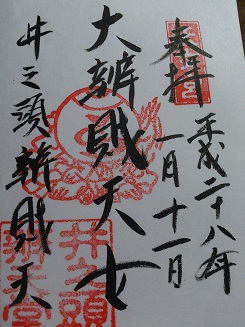 奉拝
平成二十八年
一月十一日
大辨財天女
井之頭辨財天
井之頭
辨天堂